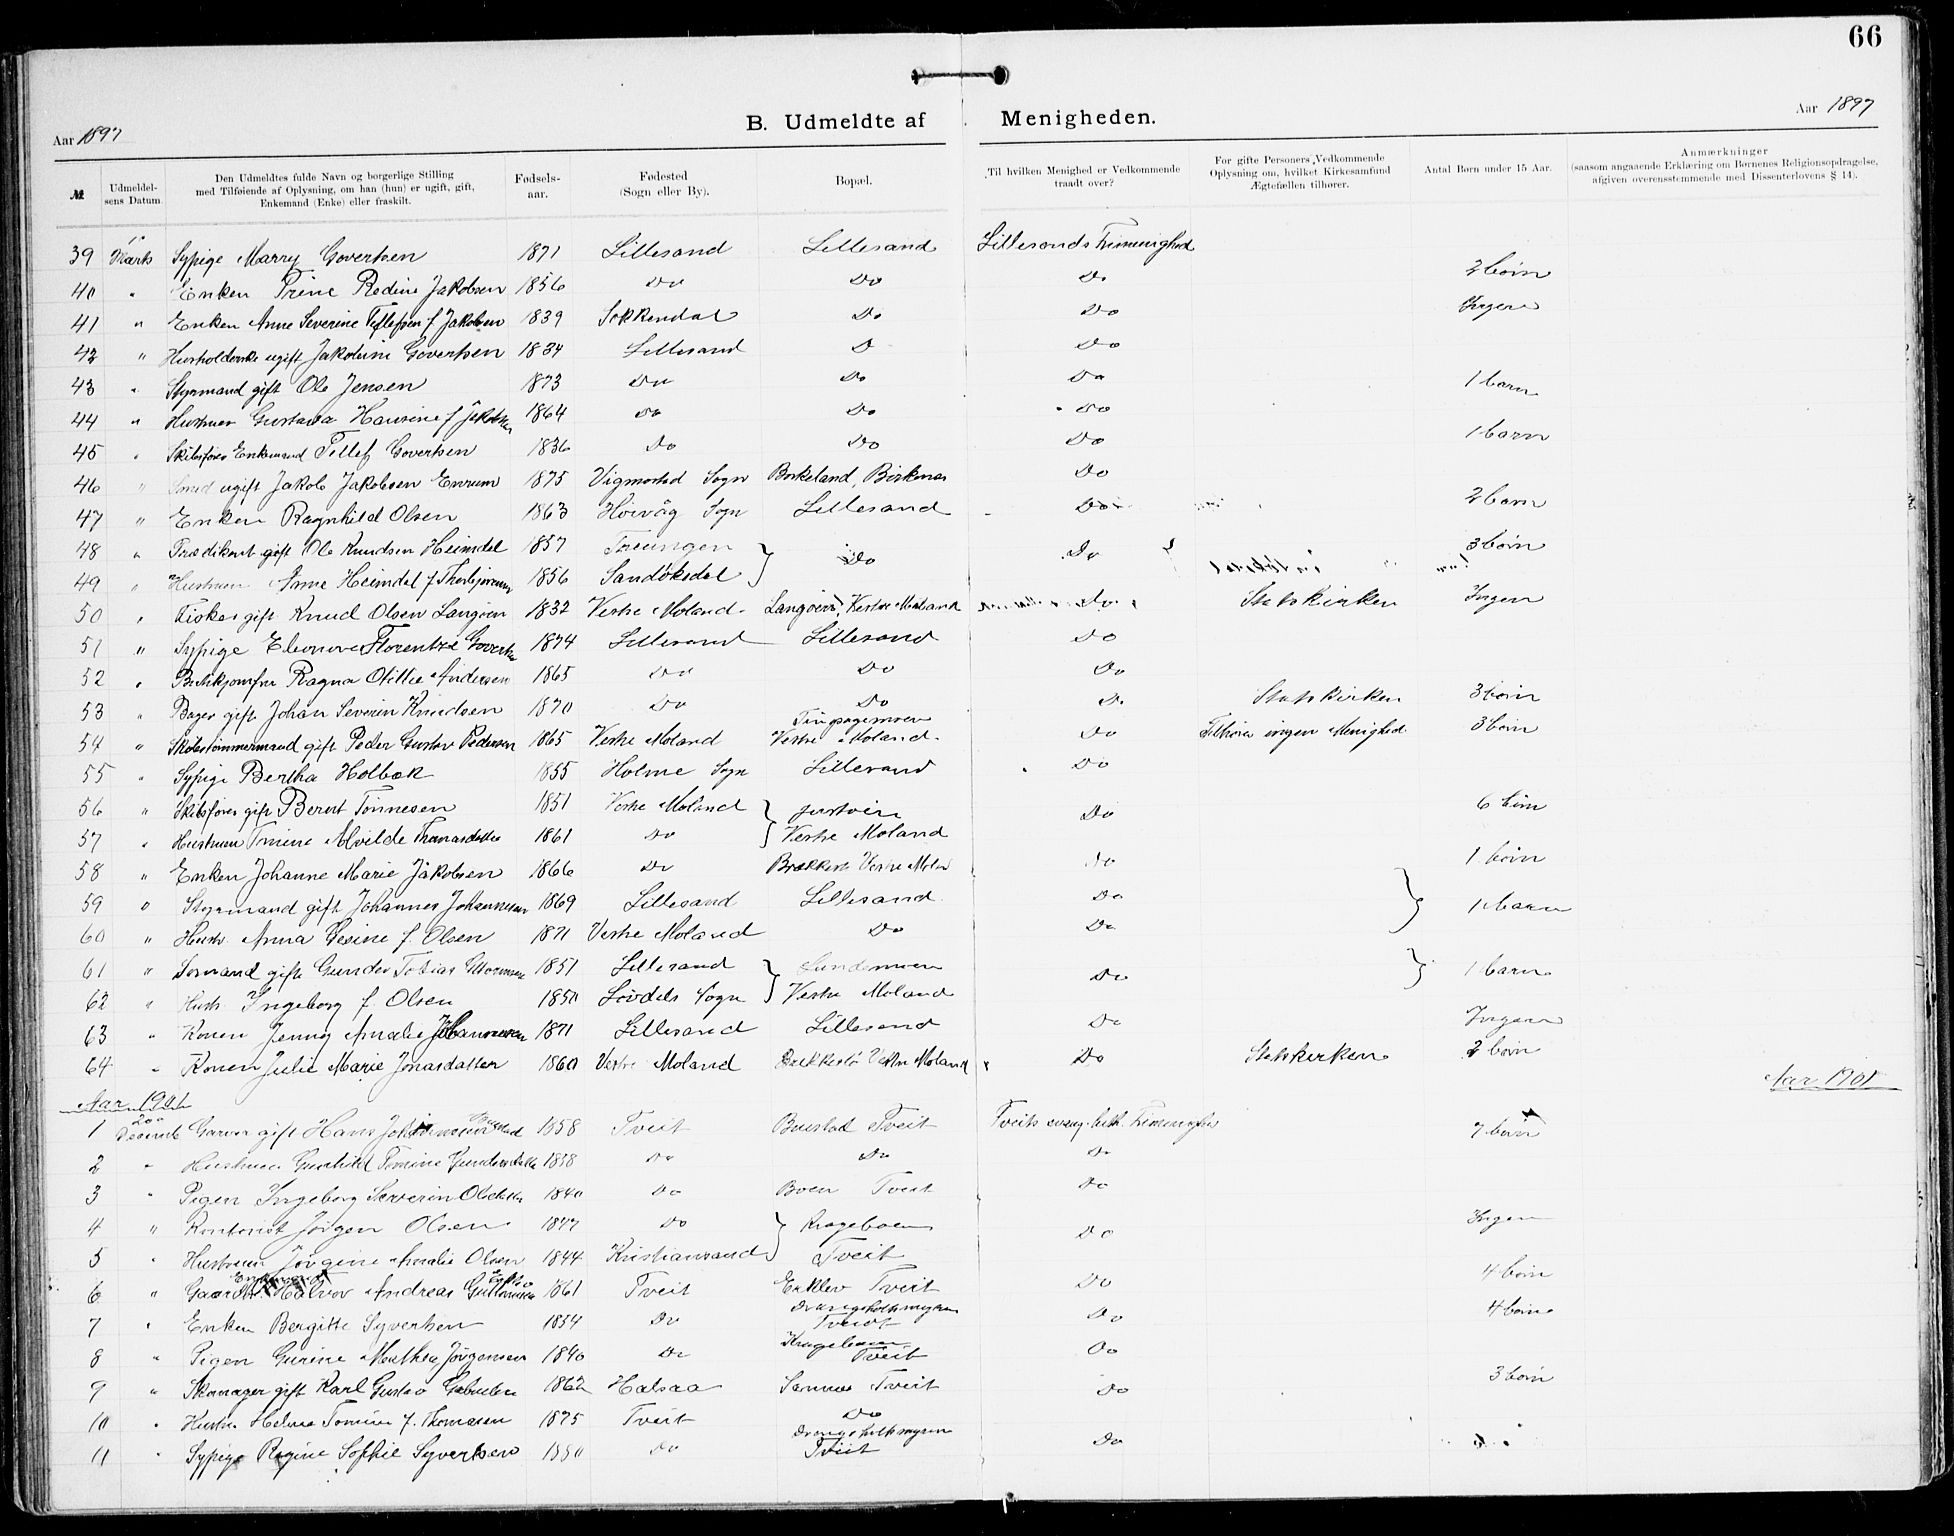 66
Aar 1897
B. Udmeldte af Menigheden.
Aar 1897
№ | Udmeldelsens Datum. | Den Udmeldtes fulde Navn og borgerlige Stilling med Tilføiende af Oplysning, om han (hun) er ugift, gift, Enkemand (Enke) eller fraskilt. | Fødselsaar. | Fødested (Sogn eller By). | Bopæl. | Til hvilken Menighed er Vedkommende traadt over? | For gifte Personers Vedkommende Oplysning om, hvilket Kirkesamfund Ægtefællen tilhører. | Antal Børn under 15 Aar. | Anmærkninger (saasom angaaende Erklæring om Børnenes Religionsopdragelse, afgiven overensstemmende med Dissenterlovens § 14).
39 Marts Sypige Marry Govertsen 1871 Lillesand Lillesand Lillesands Frimenighed
40 " Enken Trine Redine Jakobsen 1856 Do Do Do 2 börn
41 " Enken Anne Severine Tellefsen f. Jakobsen 1839 Sokkendal Do Do Ingen
42 " Husholderske ugift Jakobine Govertsen 1834 Lillesand D Do
43 " Styrmand gift Ole Jensen 1873 Do Do Do 1 barn
44 " Hustruen Gustava Hansine f. Jakobsen 1864 Do Do Do
45 " Skibsförer Enkemand Tellef Govertsen 1836 Do Do Do 1 barn
46 " Smed ugift Jakob Jakobsen 1875 Vigmostad Sogn Birkeland, Birkenes Do
47 " Enken Ragnhild Olsen 1863 Höivåg Sogn Lillesand Do 2 barn
48 " Prædikant gift Ole Knudsen Heimdal 1857 Treungen Do Do 3 börn
49 " Hustruen Anne Heimdal f. 1856 Sandökedal
50 " Fisker gift Knud Olsen Langöen 1832 Vestre Moland Langöen, Vestre Moland Do Statskirken Ingen
51 " Sypige Eleonore Florentze Govertsen 1874 Lillesand Lillesand Do
52 " Butikjomfru Ragna Otillie Andersen 1865 Do Do Do
53 " Bager gift Johan Severin Knudsen 1870 Do Do Do Statskirken 3 börn
54 " Skibstömmermand gift Peder Gustav Pedersen 1865 Vestre Moland Tingsagermoen Vestre Moland Do Tilhörer ingen Menighed 3 börn
55 " Sypige Bertha Holbæk 1855 Holme Sogn Lillesand Do
56 " Skibsförer gift Berent Tönnesen 1851 Vestre Moland Justvien Do 6 börn
57 " Hustruen Tomine Alvilde Thomasdatter 1861 Do Vestre Moland
58 " Enken Johanne Marie Jakobsen 1866 Do Brækkestö Vestre Moland Do 1 börn
59 " Styrmand gift Johannes Johannesen 1869 Lillesand Lillesand Do 1 barn
60 " Hustr. Anna Gesine f. Olsen 1871 Vestre Moland Do Do
61 " Sömand gift Gunder Tobias 1851 Lillesand Sundemoen Do 1 barn
62 " Hustr. Ingeborg f. Olsen 1850 Lövdals Sogn Vestre Moland
63 " Konen Jenny Amalie Johannesen 1871 Lillesand Lillesand Do Ingen
64 " Konen Julie Marie Jonasdatter 1860 Vestre Moland Brækkestö Vestre Moland Do Statskirken 2 börn
Aar 1901
Aar 1901
1 20de Decemb Garver gift Hans Johannesen Buestad 1858 Tveit Buestad Tveit Tveits evang. luth. Frimenighed 7 börn
2 " Hustruen Gunhild Tomine Gundersdatter 1858 Do Do Do
3 " Pigen Ingeborg Severin Olsdatter 1840 Do Boen Tveit Do
4 " Kontorist Jörgen Olsen 1847 Do Krageboen Do Ingen
5 " Hustruen Jörgine Amalie Olsen 1844 Kristiansand Tveit
6 " Enkemand Halvor Andreas Guttormsen 1861 Tveit Eikeler Tveit Do 4 börn
7 " Enken Bergitte Syvertsen 1854 Do Drangsholtsmyren Tveit Do 4 börn
8 " Pigen Gurine Mathea Jörgensen 1840 Do Krageboen Tveit Do
9 " Skomager gift Karl Gustav Gabrielsen 1862 Halsaa Sannes Tveit Do 3 börn
10 " Hustr. Helene Tomine f. Thomasen 1875 Tveit Do
11 " Sypige Regine Sofie Syvertsen 1880 Do Drangsholtsmyren Tveit Do